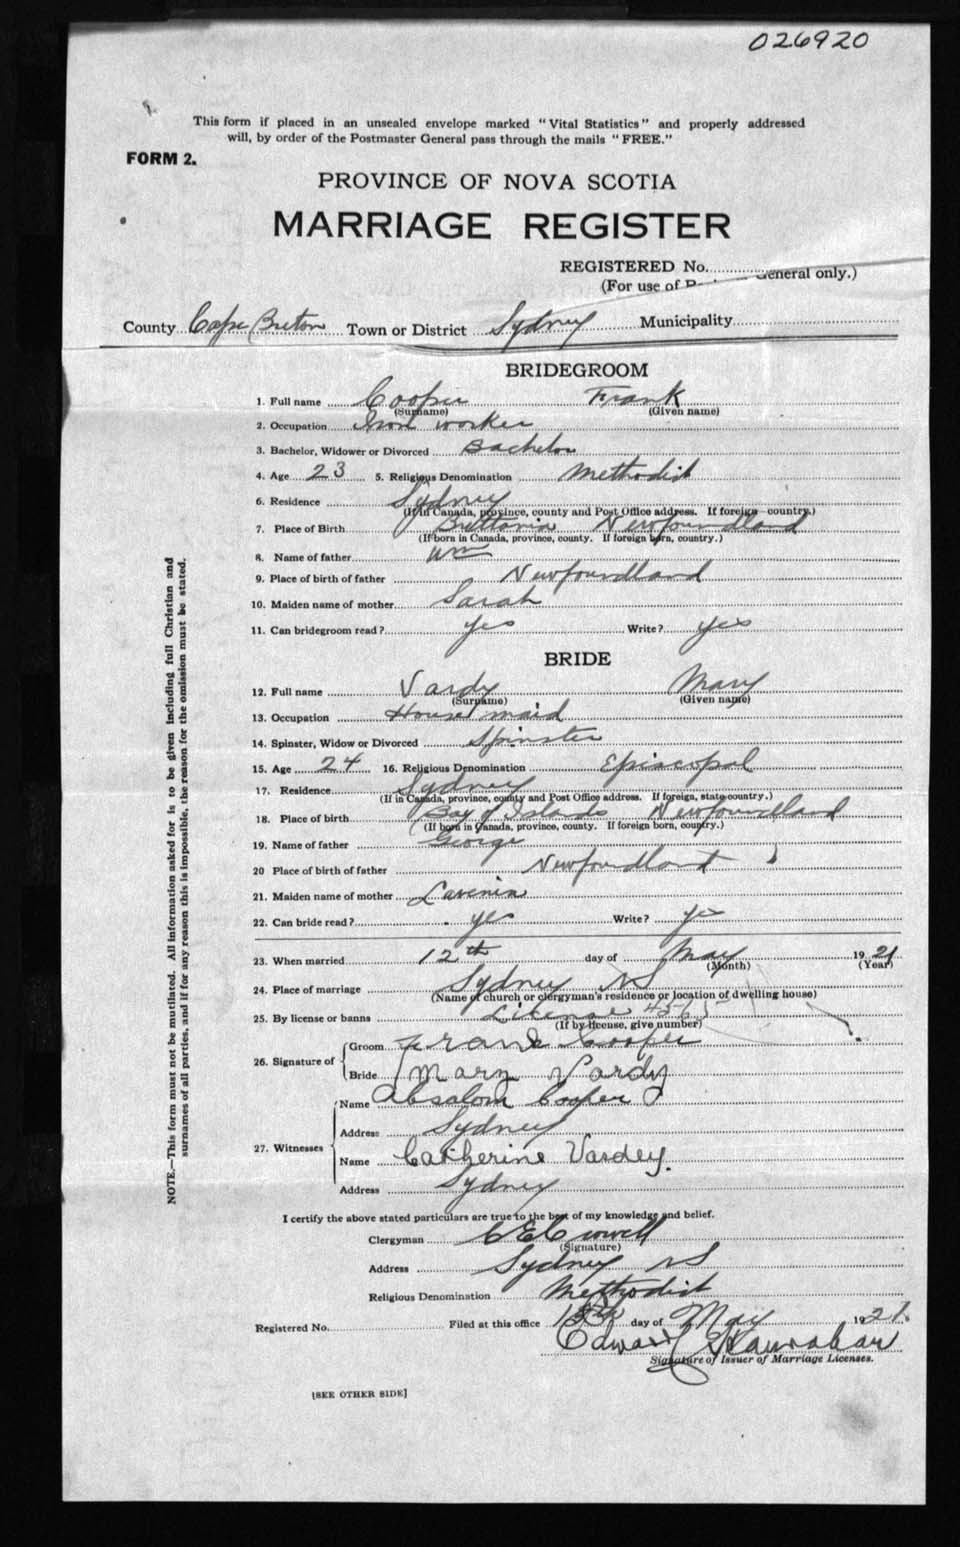 026920
This form if placed in an unsealed envelope marked "Vital Statistics" and properly addressed
will, by order of the Postmaster General pass through the mails "FREE."
FORM 2.
PROVINCE OF NOVA SCOTIA
MARRIAGE REGISTER
REGISTERED No.
(For use of General only.)
County Cape Breton Town or District Sydney Municipality
BRIDEGROOM
1. Full name Cooper Frank
(Surname) (Given name)
2. Occupation Iron worker
3. Bachelor, Widower or Divorced Bachelor
4. Age 23 5. Religious Denomination Methodist
6. Residence Sydney
(If in Canada, province, county and Post Office address. If foreign country.)
7. Place of Birth Brittania Newfoundland
(If born in Canada, province, county. If foreign born, country.)
8. Name of father Wm
9. Place of birth of father Newfoundland
10. Maiden name of mother Sarah
11. Can bridegroom read? yes Write? yes
BRIDE
12. Full name Vardy Mary
(Surname) (Given name)
13. Occupation House maid
14. Spinster, Widow or Divorced Spinster
15. Age 24 16. Religious Denomination Episcopal
17. Residence Sydney
(If in Canada, province, county and Post Office address. If foreign, state country.)
18. Place of birth Bay of Islands Newfoundland
(If born in Canada, province, county. If foreign born, country.)
19. Name of father George
20 Place of birth of father Newfoundland
21. Maiden name of mother Lavenia
22. Can bride read? yes Write? yes
23. When married 12th day of May 1921
(Month) (Year)
24. Place of marriage Sydney NS
(Name of church or clergyman's residence or location of dwelling house)
25. By license or banns License
(If by license, give number)
26. Signature of Groom Frank Cooper
Bride Mary Vardy
27. Witnesses Name Absalom Cooper
Address Sydney
Name Catherine Vardey.
Address Sydney
I certify the above stated particulars are true to the best of my knowledge and belief.
Clergyman
(Signature)
Address Sydney NS
Religious Denomination Methodist
Registered No. Filed at this office day of May 1921.
Edward
Signature of Issuer of Marriage Licenses.
[SEE OTHER SIDE]
NOTE.—This form must not be mutilated. All information asked for is to be given including full Christian and
surnames of all parties, and if for any reason this is impossible, the reason for the omission must be stated.